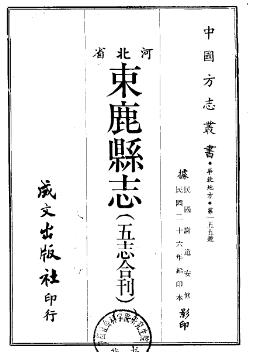 中國方志叢書・華北地方・第一五五號
據民國謝道安修
民國二十六年鉛印本影印
河北省
束鹿縣志(五志合刊)
成文出版社印行